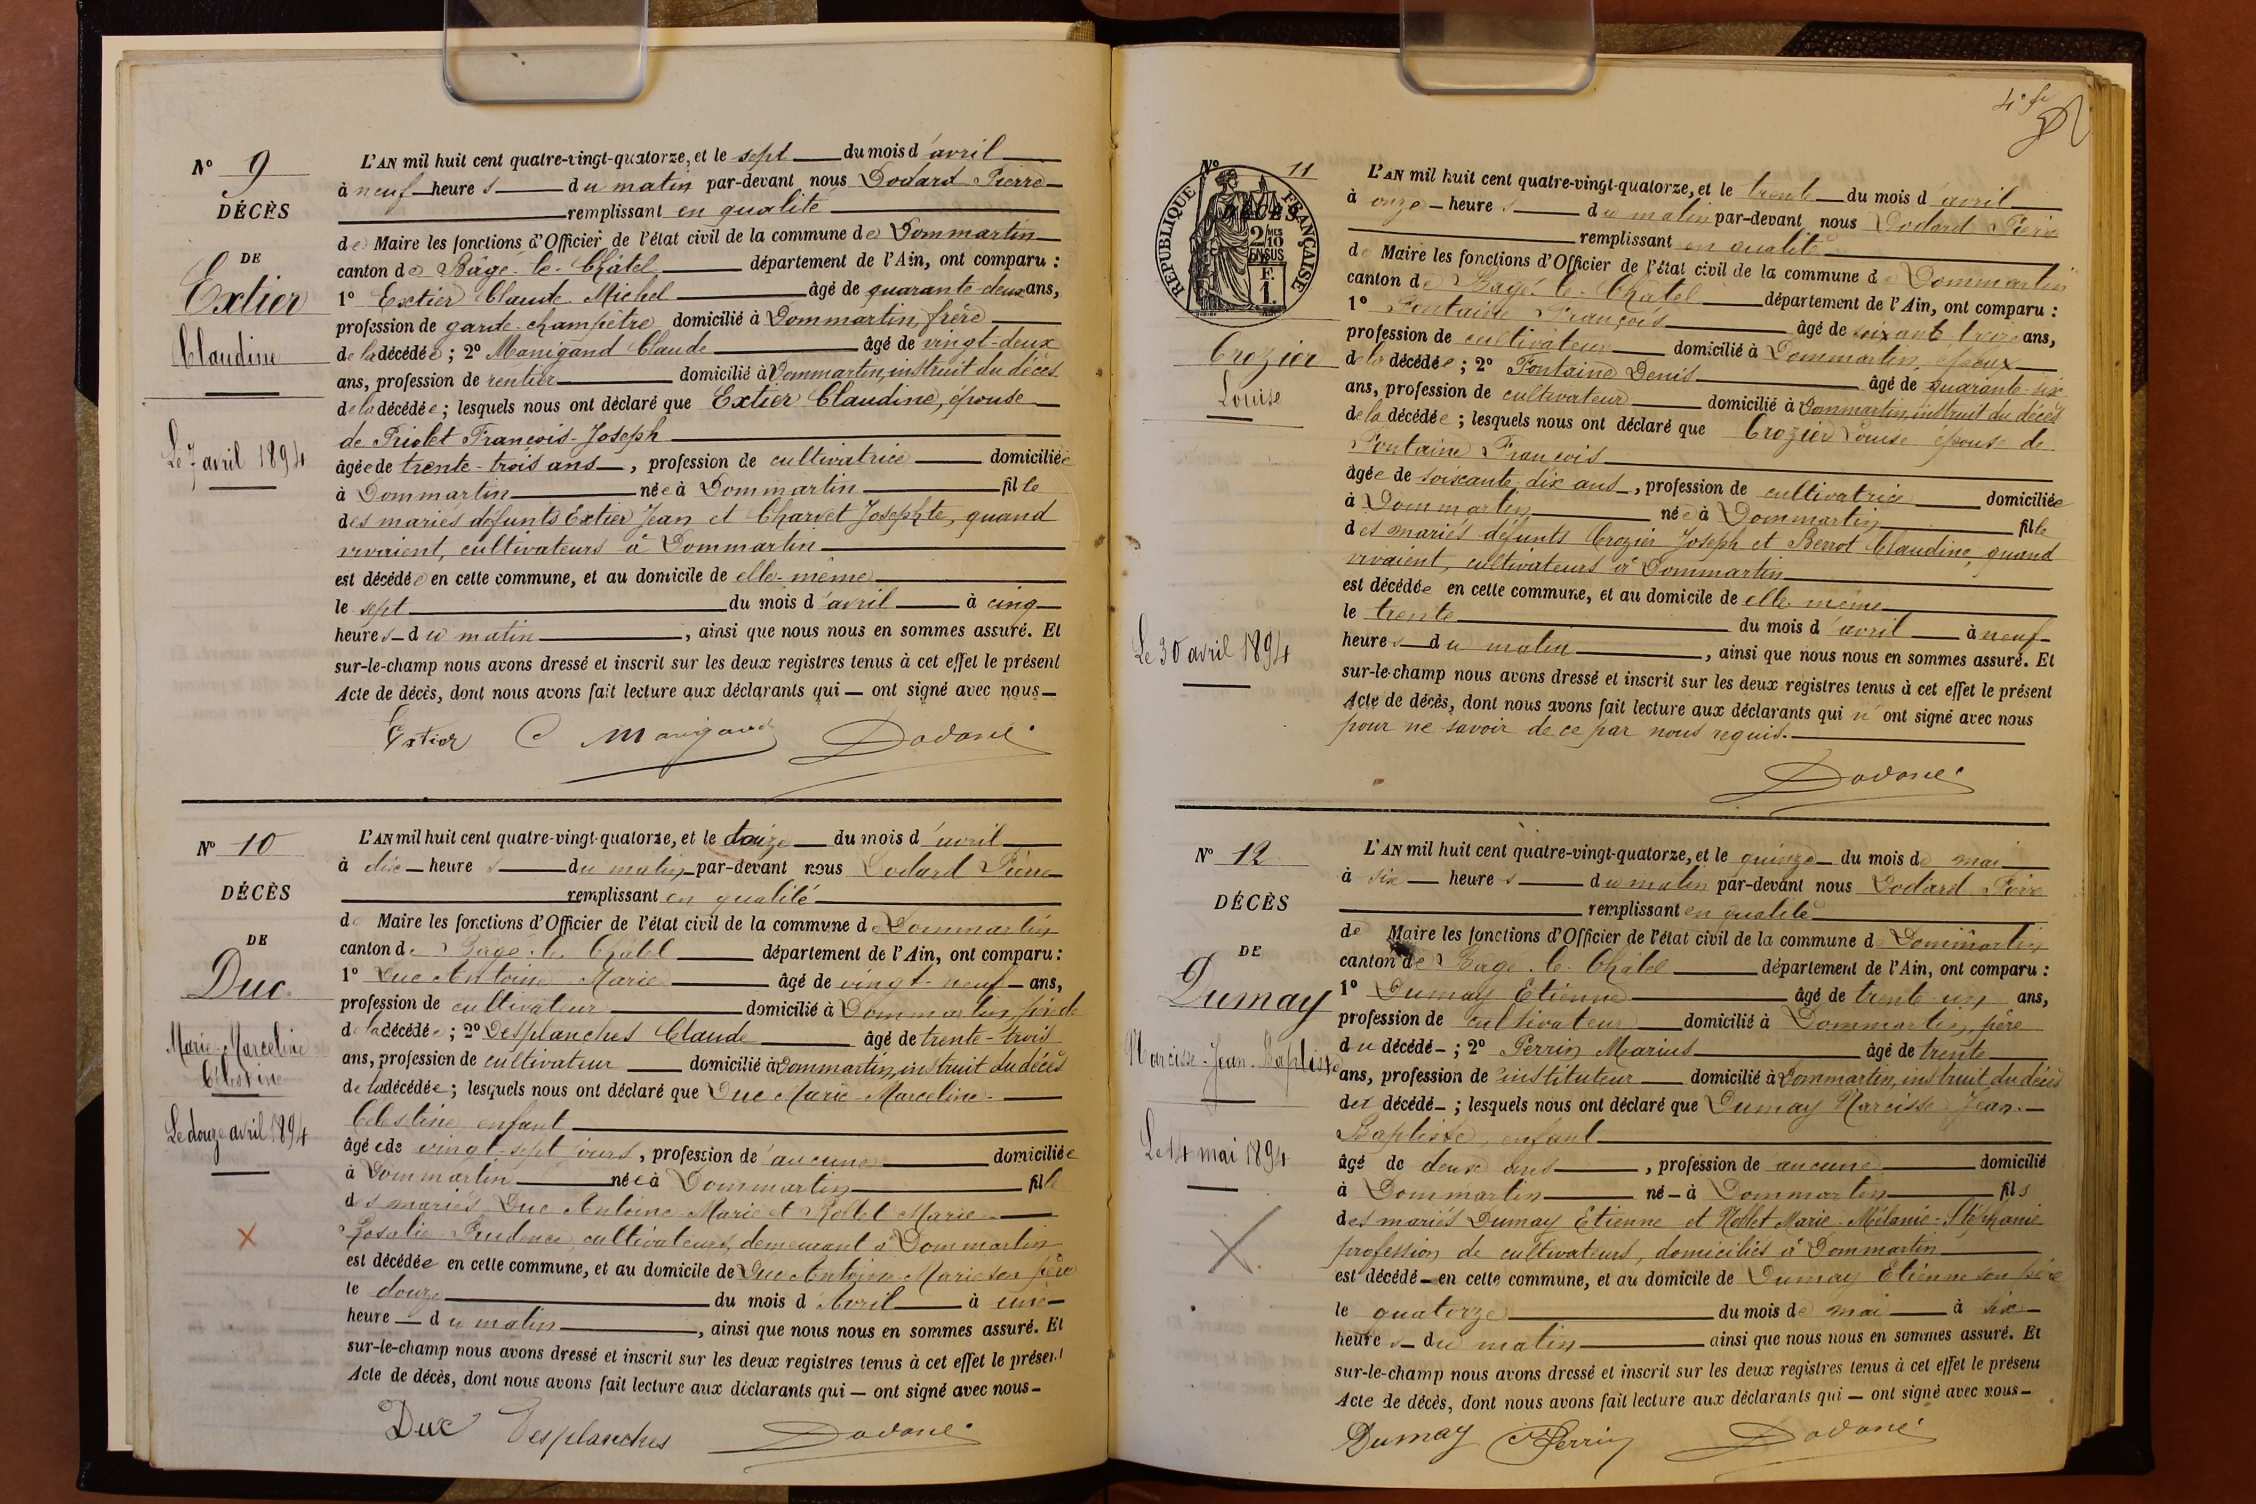 N° 9
DÉCÈS
DE
Extier
Claudine
Le 7 avril 1894
L'AN mil huit cent quatre-vingt-quatorze, et le sept du mois d'avril
à neuf heures du matin par-devant nous Dodard Pierre
remplissant en qualité
de Maire les fonctions d'Officier de l'état civil de la commune de Dommartin
canton de Bâgé-le-Châtel département de l'Ain, ont comparu :
1° Extier Claude Michel âgé de quarante-deux ans,
profession de garde-champêtre domicilié à Dommartin, frère
de la décédée ; 2° Manigand Claude âgé de vingt-deux
ans, profession de rentier domicilié à Dommartin, instruit du décès
de la décédée ; lesquels nous ont déclaré que Extier Claudine, épouse
de Friolet François-Joseph
âgée de trente-trois ans, profession de cultivatrice domiciliée
à Dommartin née à Dommartin fille
des mariés défunts Extier Jean et Charvet Josephte, quand
vivaient, cultivateurs à Dommartin
est décédée en cette commune, et au domicile de elle-même
le sept du mois d'avril à cinq
heures du matin, ainsi que nous nous en sommes assuré. Et
sur-le-champ nous avons dressé et inscrit sur les deux registres tenus à cet effet le présent
Acte de décès, dont nous avons fait lecture aux déclarants qui — ont signé avec nous
Extier C Manigand Dodard
N° 10
DÉCÈS
DE
Duc
Marie-Marceline
Célestine
Le douze avril 1894
L'AN mil huit cent quatre-vingt-quatorze, et le douze du mois d'avril
à dix heures du matin par-devant nous Dodard Pierre
remplissant en qualité
de Maire les fonctions d'Officier de l'état civil de la commune de Dommartin
canton de Bâgé-le-Châtel département de l'Ain, ont comparu :
1° Duc Antoine Marie âgé de vingt-neuf ans,
profession de cultivateur domicilié à Dommartin père
de la décédée ; 2° Desplanches Claude âgé de trente-trois
ans, profession de cultivateur domicilié à Dommartin, instruit du décès
de la décédée ; lesquels nous ont déclaré que Duc Marie-Marceline-
Célestine, enfant
âgée de vingt-sept jours, profession de aucune domiciliée
à Dommartin née à Dommartin fille
des mariés Duc Antoine Marie et Rollet Marie
Rosalie Prudence, cultivateurs, demeurant à Dommartin
est décédée en cette commune, et au domicile de Duc Antoine-Marie son père
le douze du mois d'Avril à une
heure du matin, ainsi que nous nous en sommes assuré. Et
sur-le-champ nous avons dressé et inscrit sur les deux registres tenus à cet effet le présent
Acte de décès, dont nous avons fait lecture aux déclarants qui — ont signé avec nous
Duc Desplanches Dodard
4e f
N° 11
DÉCÈS
RÉPUBLIQUE FRANÇAISE
2/10MES
EN SUS
F.
1.
Crozier
Louise
Le 30 avril 1894
L'AN mil huit cent quatre-vingt-quatorze, et le trente du mois d'avril
à onze heures du matin par-devant nous Dodard Pierre
remplissant en qualité
de Maire les fonctions d'Officier de l'état civil de la commune de Dommartin
canton de Bâgé-le-Châtel département de l'Ain, ont comparu :
1° Fontaine François âgé de soixante trois ans,
profession de cultivateur domicilié à Dommartin, époux
de la décédée ; 2° Fontaine Denis âgé de quarante-six
ans, profession de cultivateur domicilié à Dommartin, instruit du décès
de la décédée ; lesquels nous ont déclaré que Crozier Louise épouse de
Fontaine François
âgée de soixante dix ans, profession de cultivatrice domiciliée
à Dommartin née à Dommartin fille
des mariés défunts Crozier Joseph et Berrot Claudine, quand
vivaient, cultivateurs à Dommartin
est décédée en cette commune, et au domicile de elle même
le trente du mois d'avril à neuf
heures du matin, ainsi que nous nous en sommes assuré. Et
sur-le-champ nous avons dressé et inscrit sur les deux registres tenus à cet effet le présent
Acte de décès, dont nous avons fait lecture aux déclarants qui n'ont signé avec nous
pour ne savoir de ce par nous requis.
Dodard
N° 12
DÉCÈS
DE
Dumay
Narcisse-Jean-Baptiste
Le 14 mai 1894
L'AN mil huit cent quatre-vingt-quatorze, et le quinze du mois de mai
à six heures du matin par-devant nous Dodard Pierre
remplissant en qualité
de Maire les fonctions d'Officier de l'état civil de la commune de Dommartin
canton de Bâgé-le-Châtel département de l'Ain, ont comparu :
1° Dumay Etienne âgé de trente-un ans,
profession de cultivateur domicilié à Dommartin, père
du décédé ; 2° Perrin Marius âgé de trente
ans, profession de instituteur domicilié à Dommartin, instruit du décès
du décédé ; lesquels nous ont déclaré que Dumay Narcisse Jean-
Baptiste, enfant
âgé de deux ans, profession de aucune domicilié
à Dommartin né à Dommartin fils
des mariés Dumay Etienne et Noblet Marie-Mélanie-Stéphanie
profession de cultivateurs, domiciliés à Dommartin
est décédé en cette commune, et au domicile de Dumay Etienne son père
le quatorze du mois de mai à six
heures du matin ainsi que nous nous en sommes assuré. Et
sur-le-champ nous avons dressé et inscrit sur les deux registres tenus à cet effet le présent
Acte de décès, dont nous avons fait lecture aux déclarants qui — ont signé avec nous
Dumay Perrin Dodard